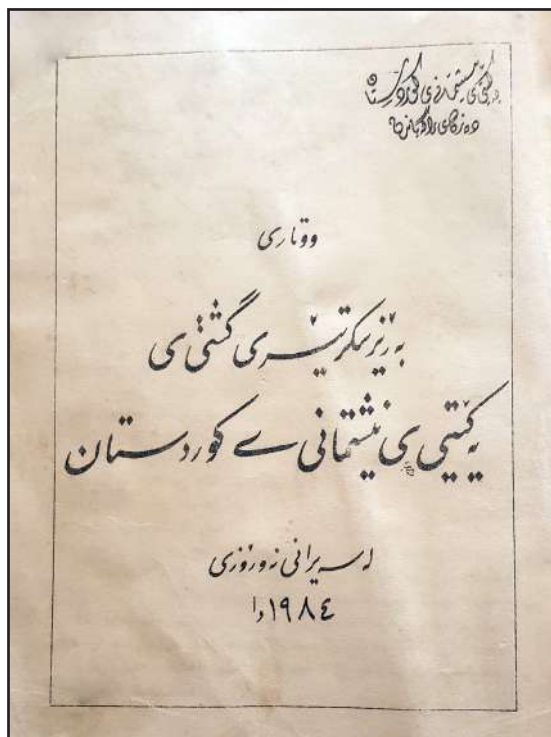 یەکێتی نیشتمانی کوردستان
دەزگای ڕاگەیاندن
ووتاری
بەڕێز سکرتێری گشتی ی
یەکێتیی ی نیشتمانی ے کوردستان
لە سەیرانی نەورۆزی
١٩٨٤ دا